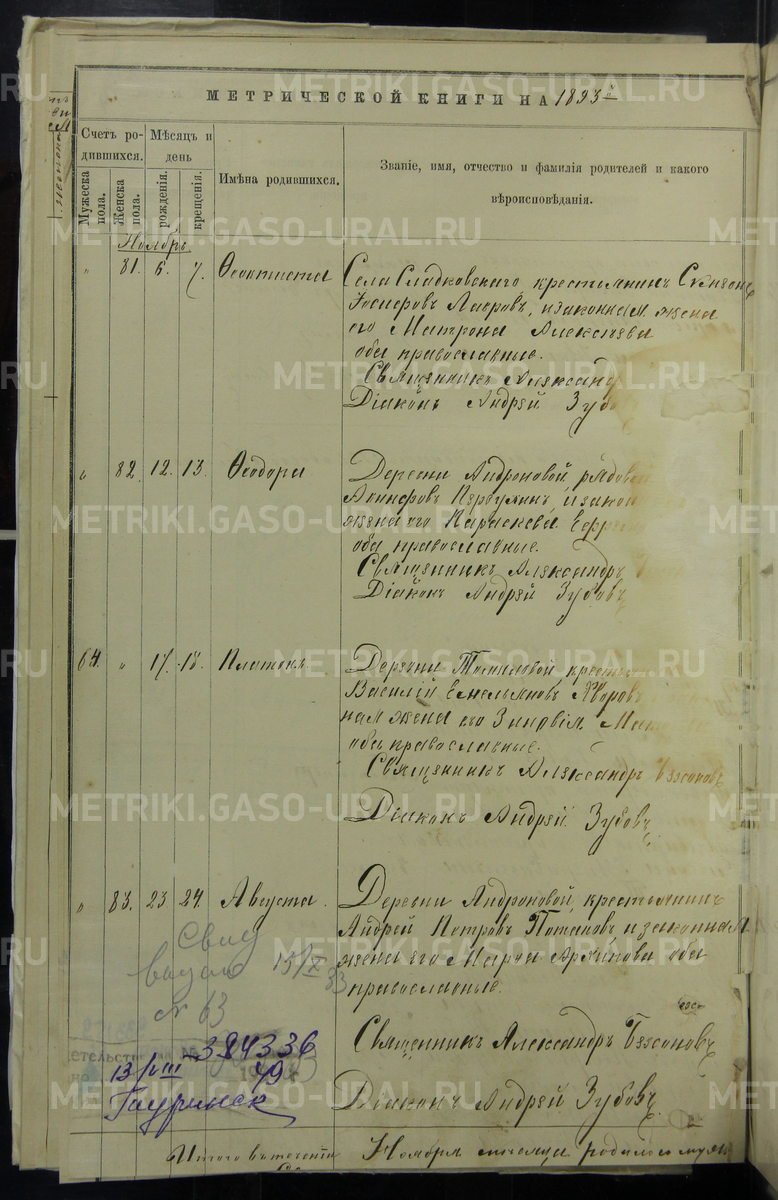 МЕТРИЧЕСКОЙ КНИГИ НА 1893й
Счетъ ро-
дившихся.
Мѣсяцъ и
день
Мужеска
пола.
Женска
пола.
рожденія.
крещенія.
Имѣна родившихся.
Званіе, имя, отчество и фамилія родителей и какого
вѣроисповѣданія.
Ноябрь
" 81. 6. 7. Ѳеоктиста
Села Сладковскаго крестьянинъ
Іосифовъ Лавровъ, и законная жена
его Матрона Алексѣева
оба православные.
Священникъ Александ
Діаконъ Андрей Зубо
" 82. 12. 13. Ѳеодора
Деревни Андроновой рядовой
жена его Параскева Ефре
оба православные.
Священникъ Александръ
Діаконъ Андрей Зубовъ
64. " 17. 18. Платонъ
Деревни Томиловой кресть
Василій Емельяновъ
ная жена его Зиновія
оба православные.
Священникъ Александръ Безсоновъ
Діаконъ Андрей Зубовъ
" 83. 23 24. Августа.
Деревни Андроновой, крестьянинъ
Андрей Петровъ Потаповъ и законная
жена его Марѳа оба
православные.
Священникъ Александръ Безсоновъ
Діаконъ Андрей Зубовъ
Свид
выдано 15/X 33
№ 63
384336
13/VIII 49
Итого въ теченіи
Ноября мѣсяца родилось муж
METRIKI.GASO-URAL.RU